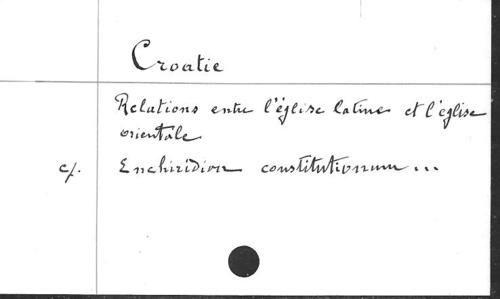 Croatie
Relations entre l'église latine et l'église
orientale
cf. Enchiridion constitutionum...